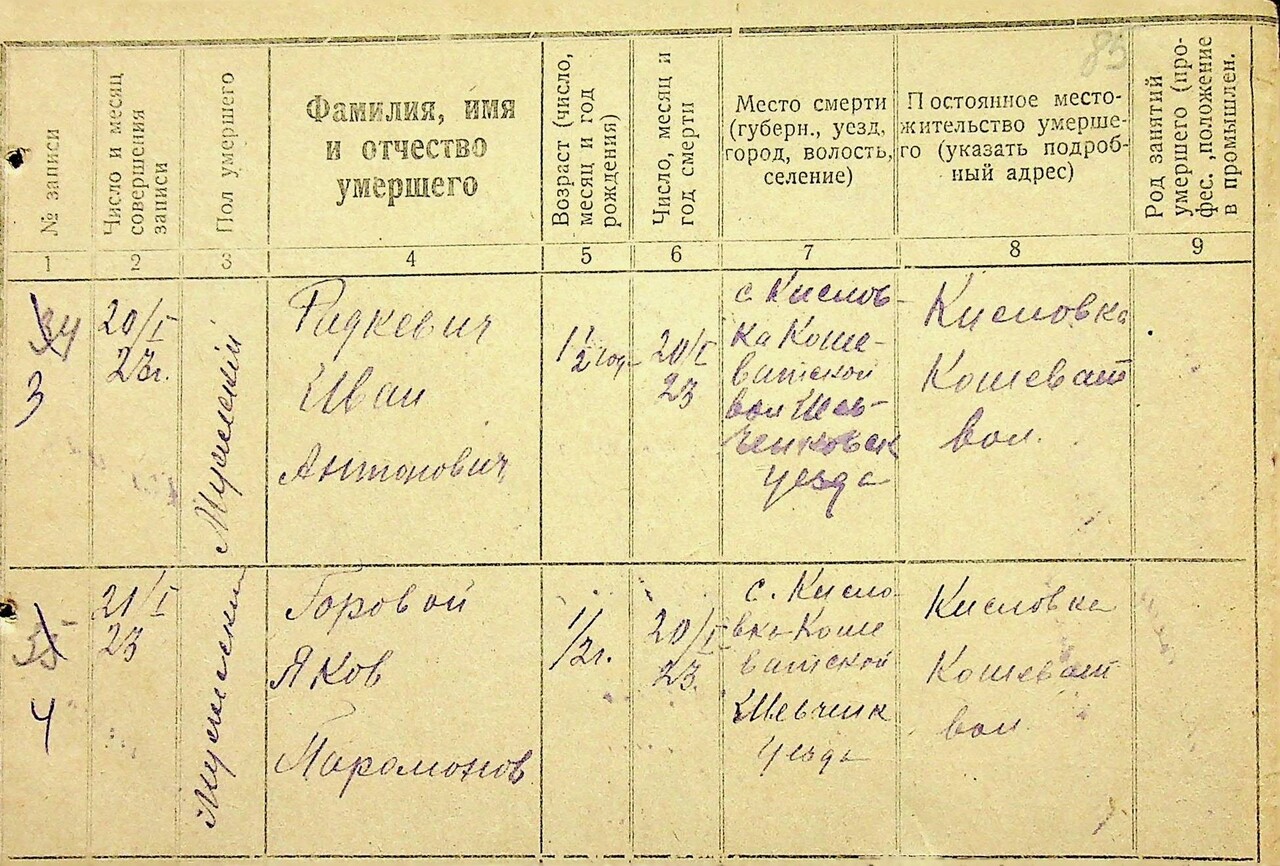 85
№ записи
Число и месяц
совершения
записи
Пол умершего
Фамилия, имя
и отчество
умершего
Возраст (число,
месяц и год
рождения)
Число, месяц и
год смерти
Место смерти
(губерн., уезд,
город, волость,
селение)
Постоянное место-
жительство умерше-
го (указать подроб-
ный адрес)
Род занятий
умершего (про-
фес., положение
в промышлен.
1 2 3 4 5 6 7 8 9
34
3
20/I
23г.
Мужский
Радкевич
Иван
Антонович
1/2 год
20/I
23
с Кислов-
ка Коше-
ватской
вол Шев-
ченковск
уезда
Кисловка
Кошеват
вол.
35
4
21/I
23
Мужески
Горовой
Яков
Парамонов
1/2г.
20/I
23.
с. Кисло
вка Коше
ватской
Шевченк
уезда
Кисловка
Кошеват
вол.